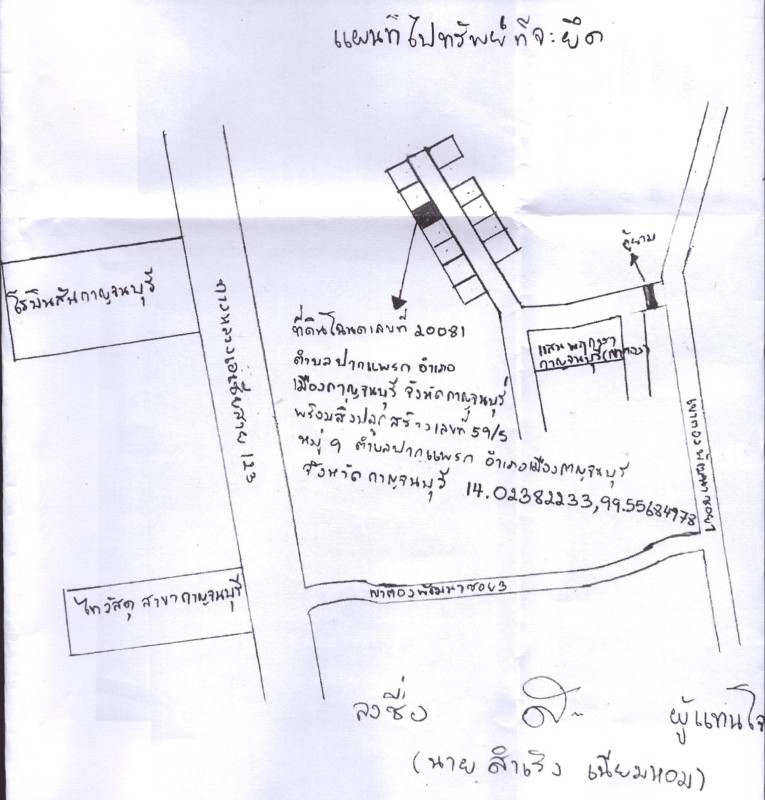 แผนที่ไปทรัพย์ที่จะยึด
ป้อมยาม
โรบินสันกาญจนบุรี
ทางหลวงเอเชียสาย 123
ที่ดินโฉนดเลขที่ 20081
ตำบลปากแพรก อำเภอ
เมืองกาญจนบุรี จังหวัดกาญจนบุรี
พร้อมสิ่งปลูกสร้างเลขที่ 59/5
หมู่ 9 ตำบลปากแพรก อำเภอเมืองกาญจนบุรี
จังหวัดกาญจนบุรี 14.02382233,99.55684978
แสนพฤกษา
กาญจนบุรี(เขาตอง)
ไทวัสดุ สาขากาญจนบุรี
เขาตองพัฒนาซอย3
ลงชื่อ ผู้แทนโจ
(นาย สำเริง เนียมหอม)